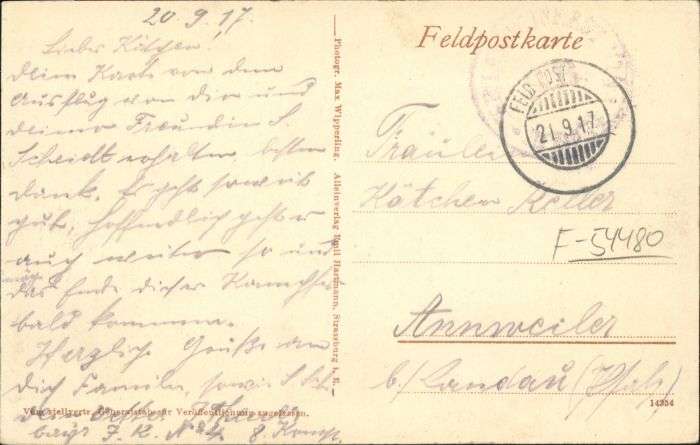 20.9.17.
Liebes Kätchen!
Deine Karte von dem
Ausflug von dir und
deiner Freundin S.
Scheidt erhalten, besten
Dank. Es geht soweit
gut, hoffendlich geht es
auch weiter so und
mag
das Ende dieses
bald kommen.
Herzliche Grüße an
dich Familie, sowie S. Sch.
dein
bayr. I. R. No 4. 8. Komp.
Vom stellvertr. Generalstabe für Veröffentlichung zugelassen.
Photogr. Max Wipperling. Alleinverlag Emil Hartmann, Strassburg i. E.
Feldpostkarte
FELDPOST
21.9.17
Fräulein
Kätchen Keller
F-54480
Annweiler
b/ Landau (Pfalz)
14354